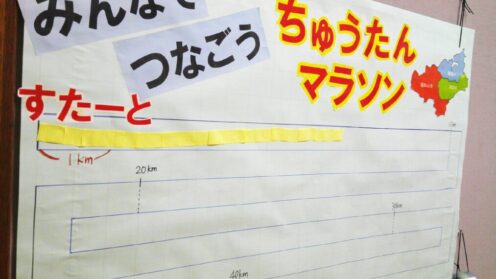 みんなで
つなごう
ちゅうたん
マラソン
すたーと
1km
20km
40km